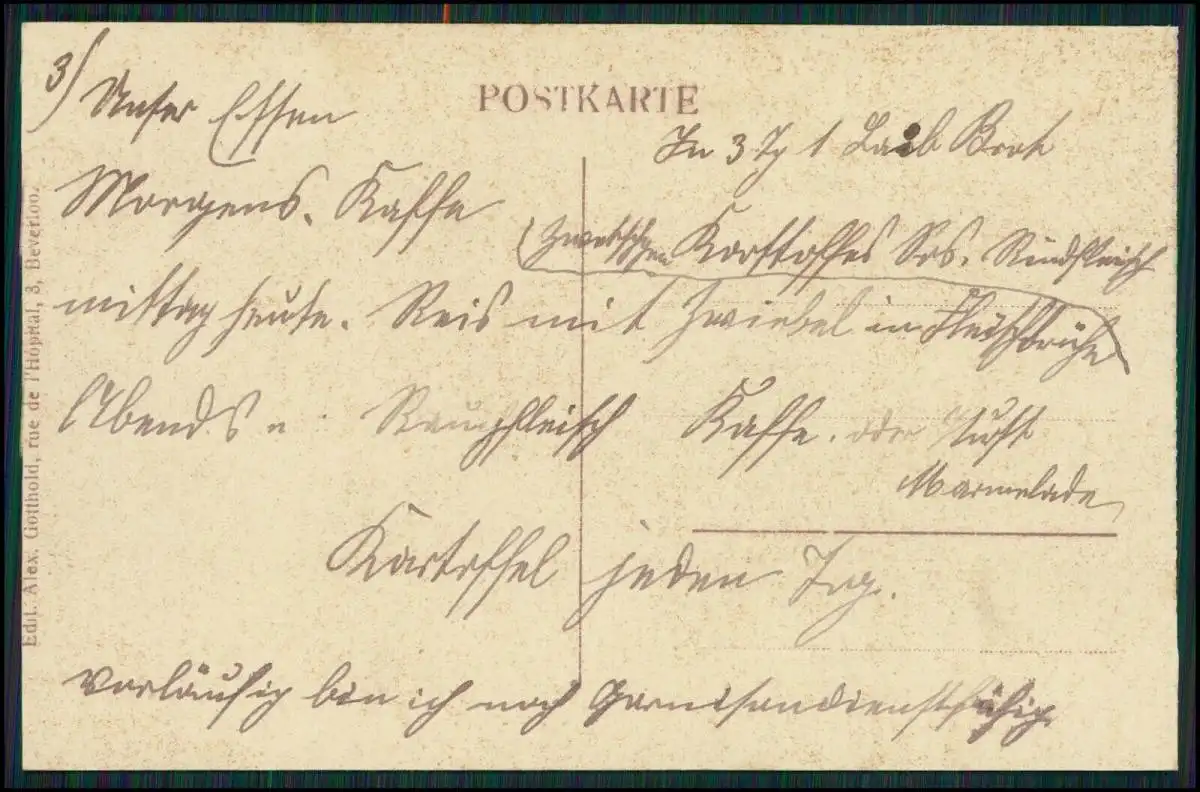 3) Unser Essen
POSTKARTE
In 3 Tg 1 Laib Brot
Morgens. Kaffe
(Zwetschgen Karttoffel Rindfleisch
mittag heute. Reis mit Zwiebel in Fleischbrühe)
Abends = Rauchfleisch Kaffe. oder Wurst
Marmelade
Kartoffel jeden Tag.
vorläufig bin ich noch Garnisondienstfähig
Edit. Alex. Gotthold, rue de l'Hôpital, 3, Beverloo.